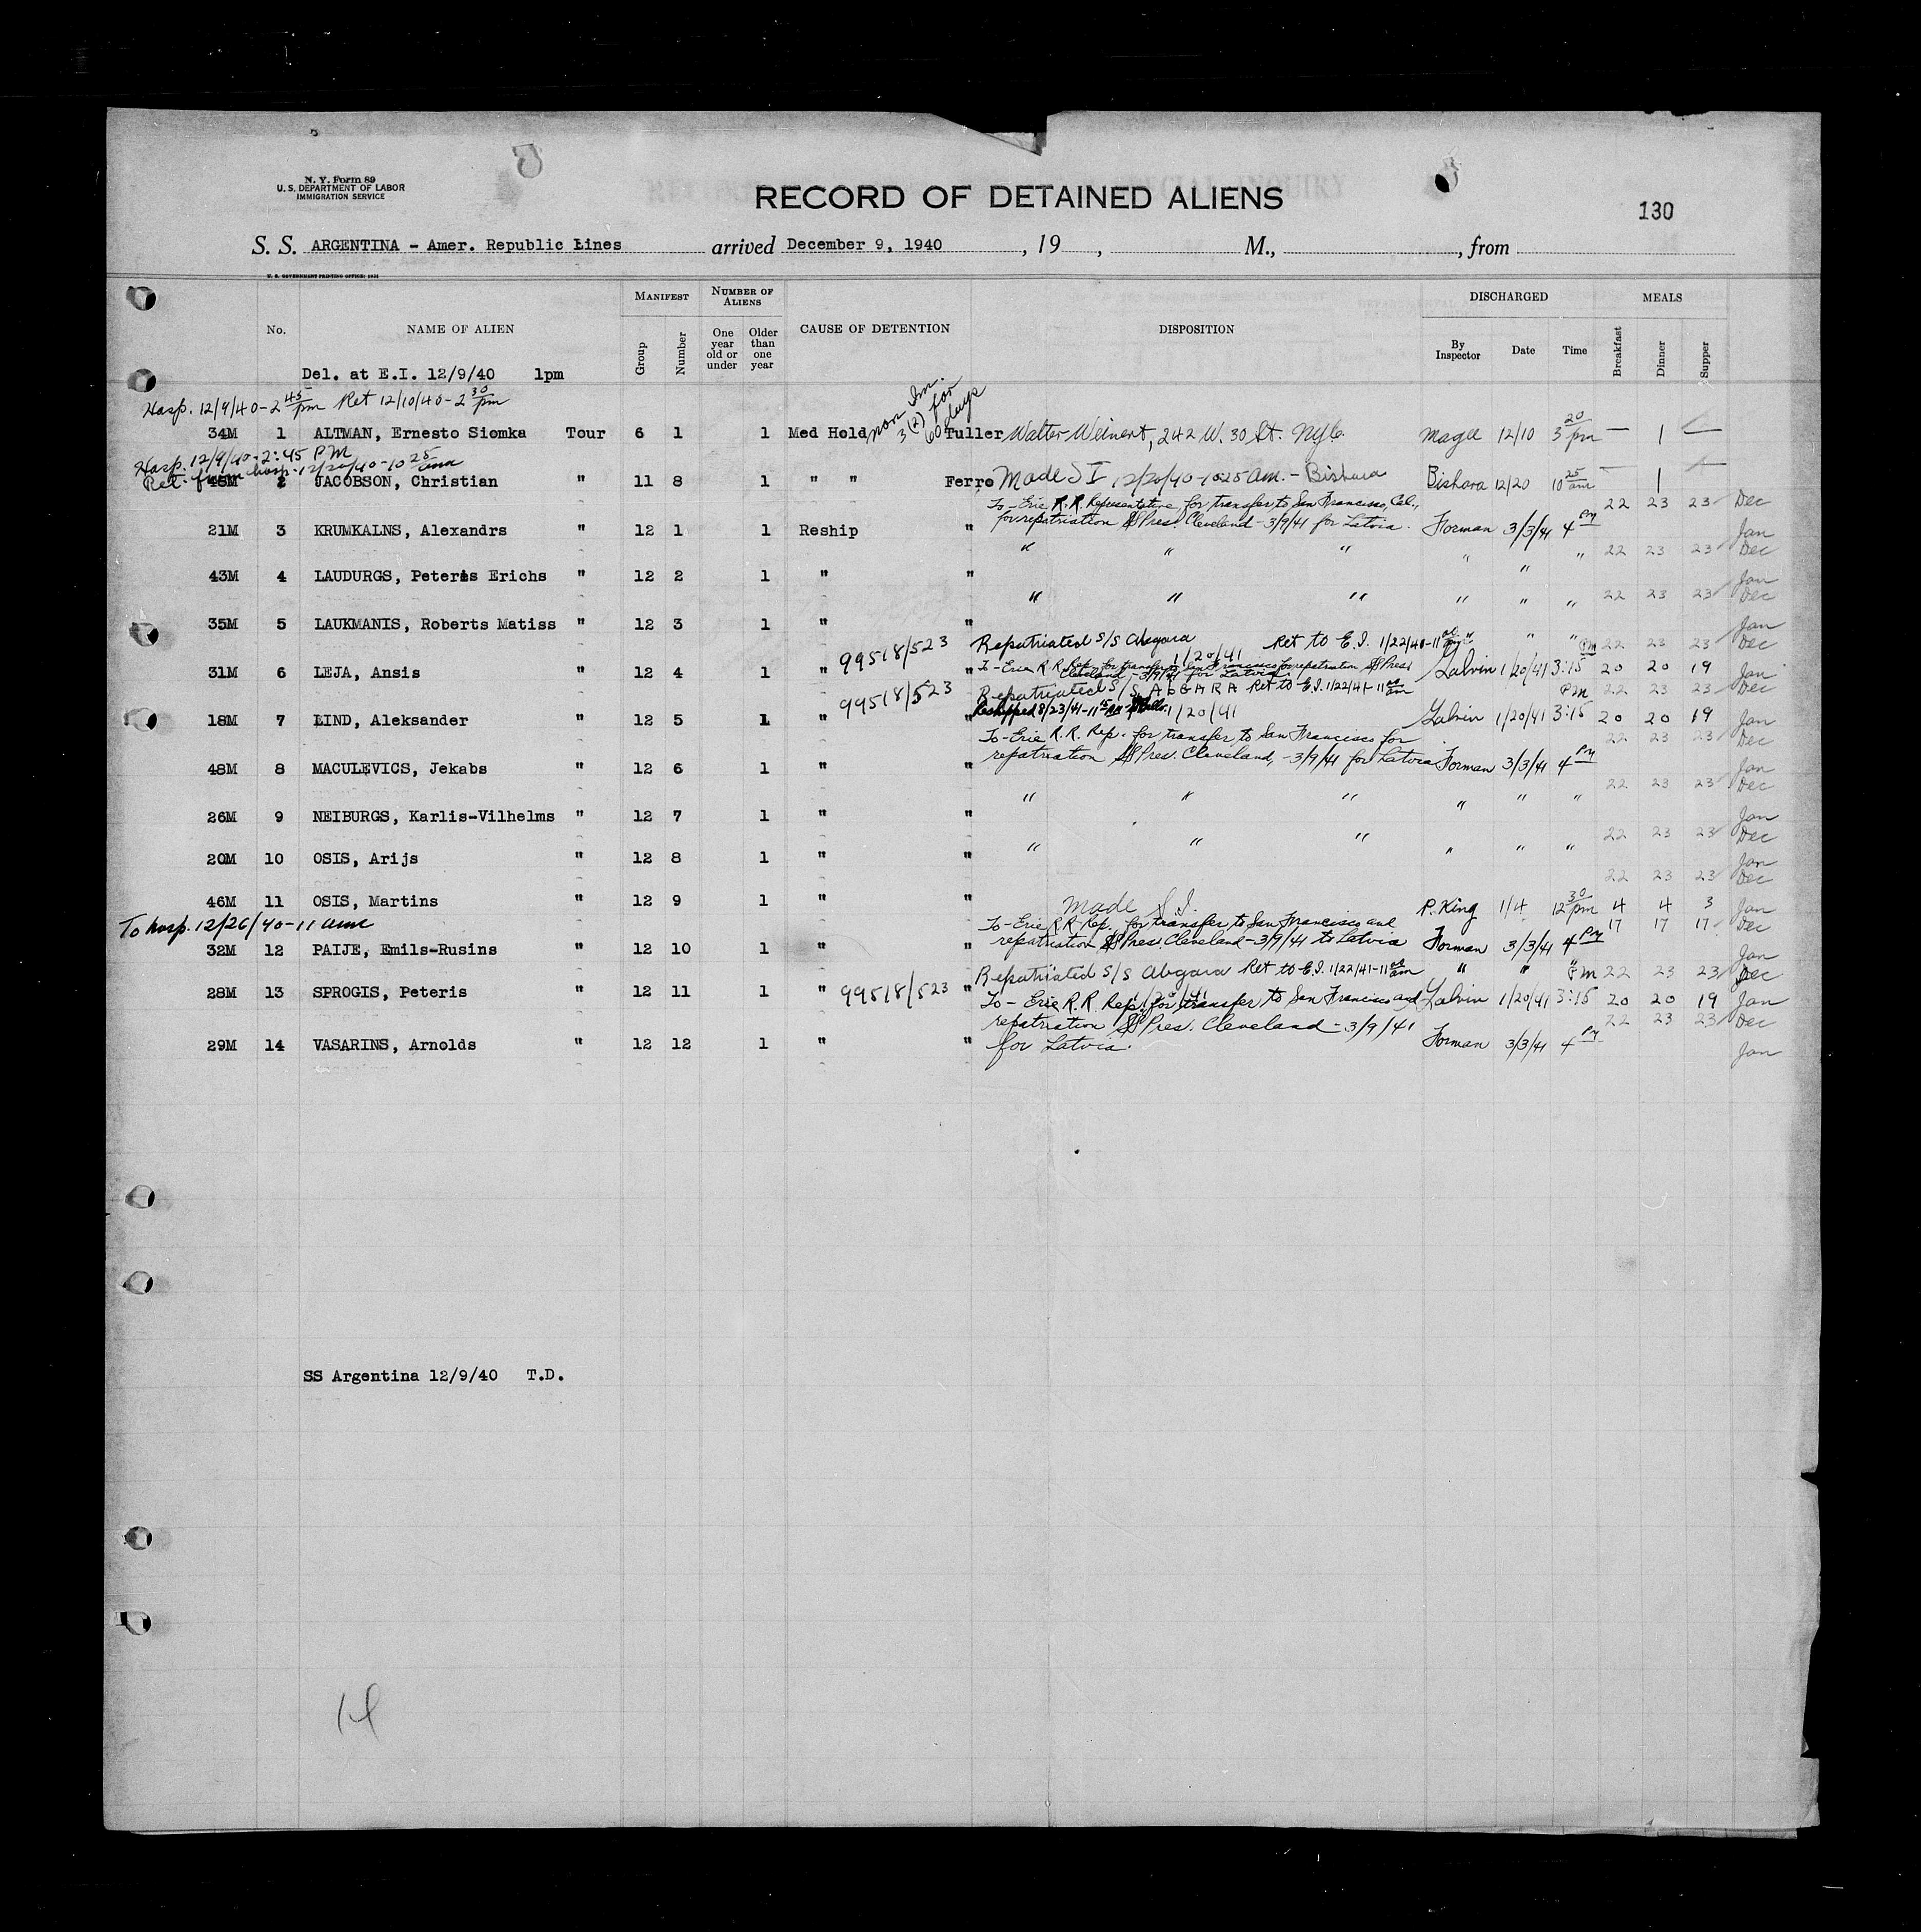 N. Y. Form 89
U. S. DEPARTMENT OF LABOR
IMMIGRATION SERVICE
RECORD OF DETAINED ALIENS
130
S. S. ARGENTINA - Amer. Republic Lines arrived December 9, 1940 , 19 , M., , from
U. S. GOVERNMENT PRINTING OFFICE:
MANIFEST NUMBER OF ALIENS DISCHARGED MEALS
No. NAME OF ALIEN Group Number One year old or under Older than one year CAUSE OF DETENTION DISPOSITION By Inspector Date Time Breakfast Dinner Supper
Del. at E.I. 12/9/40 1pm
Hosp. 12/9/40 - 2 45 pm Ret 12/10/40 - 2 30 pm
non Im. 3(2) for 60 days
34M 1 ALTMAN, Ernesto Siomka Tour 6 1 1 Med Hold Tuller Walter Weinert, 242 W. 30 St. NYC. Magee 12/10 3 20 pm — 1 —
Hosp. 12/9/40 - 2:45 PM
Ret. from hosp. 12/20/40 - 10 25 am
48M 2 JACOBSON, Christian " 11 8 1 " " Ferro Made S I 12/20/40 - 10 25 am. - Bishara Bishara 12/20 10 25 am — 1 —
To - Erie R.R. Representative for transfer to San Francisco, Cal., 22 23 23 Dec
for repatriation SS Pres. Cleveland - 3/9/41 for Latvia. Forman 3/3/41 4 PM
21M 3 KRUMKALNS, Alexandrs " 12 1 1 Reship " Jan
" " " " " " 22 23 23 Dec
43M 4 LAUDURGS, Peteris Erichs " 12 2 1 " " Jan
" " " " " " 22 23 23 Dec
35M 5 LAUKMANIS, Roberts Matiss " 12 3 1 " " " " " Jan
99518/523 Repatriated S/S Abgara 1/20/41 Ret to E.I. 1/22/41 - 11 am 22 23 23 Dec
31M 6 LEJA, Ansis " 12 4 1 " " To - Erie R.R. Rep. for transfer to San Francisco for repatriation SS Pres. Galvin 1/20/41 3:15 PM 20 20 19 Jan
Cleveland - 3/9/41 for Latvia.
99518/523 Repatriated S/S ABGARA Ret to E.I. 1/22/41 - 11 am 22 23 23 Dec
18M 7 LIND, Aleksander " 12 5 1 " " Reshipped 8/23/41 - 11 15 AM 1/20/41 Galvin 1/20/41 3:15 PM 20 20 19 Jan
To - Erie R.R. Rep. for transfer to San Francisco for 22 23 23 Dec
repatriation SS Pres. Cleveland, - 3/9/41 for Latvia Forman 3/3/41 4 PM
48M 8 MACULEVICS, Jekabs " 12 6 1 " " Jan
" " " " " " 22 23 23 Dec
26M 9 NEIBURGS, Karlis-Vilhelms " 12 7 1 " " Jan
" " " " " " 22 23 23 Dec
20M 10 OSIS, Arijs " 12 8 1 " " Jan
22 23 23 Dec
46M 11 OSIS, Martins " 12 9 1 " " made S.I. P. King 1/4 12 30 pm 4 4 3 Jan
To hosp. 12/26/40 - 11 am To - Erie R.R. Rep. for transfer to San Francisco and 17 17 17 Dec
32M 12 PAIJE, Emils-Rusins " 12 10 1 " " repatriation SS Pres. Cleveland - 3/9/41 to Latvia Forman 3/3/41 4 PM Jan
Repatriated S/S Abgara Ret to E.I. 1/22/41 - 11 am " " " 22 23 23 Dec
28M 13 SPROGIS, Peteris " 12 11 1 " 99518/523 " 1/20/41 Galvin 1/20/41 3:15 PM 20 20 19 Jan
To - Erie R.R. Rep. for transfer to San Francisco and
repatriation SS Pres. Cleveland - 3/9/41 22 23 23 Dec
29M 14 VASARINS, Arnolds " 12 12 1 " " for Latvia. Forman 3/3/41 4 PM Jan
SS Argentina 12/9/40 T.D.
14